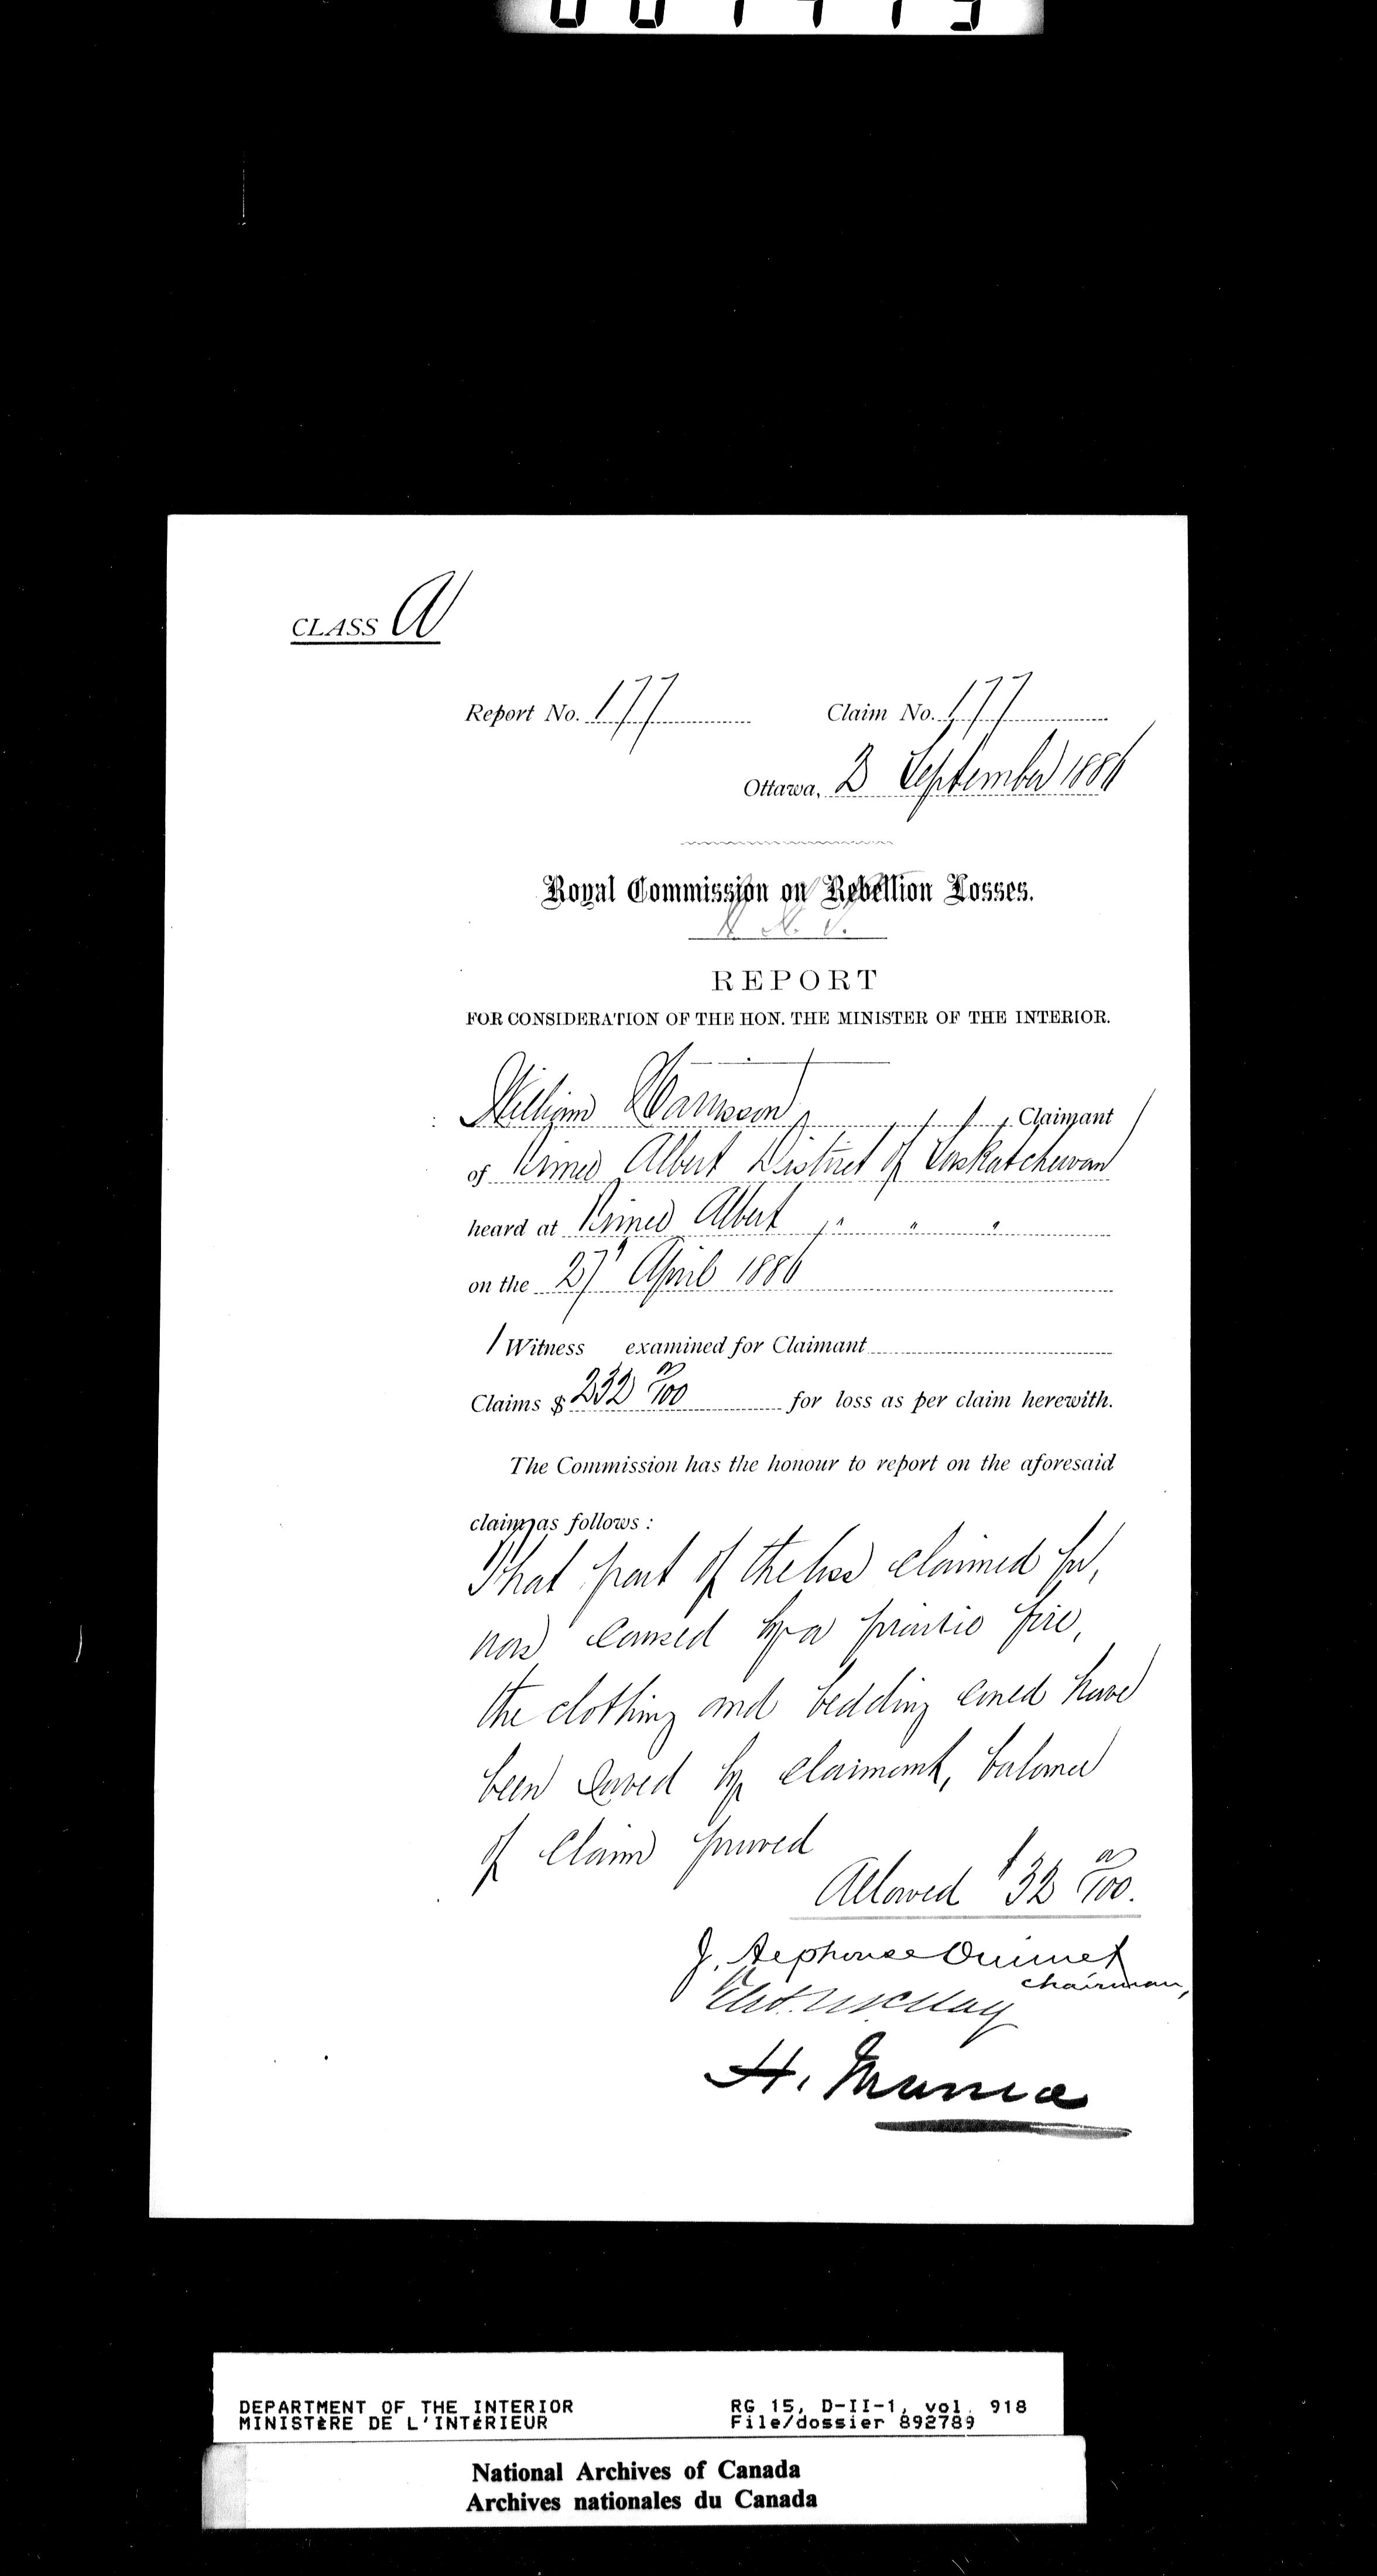 CLASS A
Report No. 177 Claim No. 177
Ottawa, 2 September 1886
Royal Commission on Rebellion Losses.
REPORT
FOR CONSIDERATION OF THE HON. THE MINISTER OF THE INTERIOR.
William Harrison Claimant
of Prince Albert District of Saskatchewan
heard at Prince Albert " " "
on the 27 April 1886
1 Witness examined for Claimant
Claims $ 232 00/100 for loss as per claim herewith.
The Commission has the honour to report on the aforesaid
claim as follows :
That part of the loss claimed for,
was caused by a prairie fire,
the clothing and bedding could have
been saved by claimant, balance
of claim proved
Allowed $32 00/100.
J. Alphonse Ouimet
Chairman,
H. Muma
DEPARTMENT OF THE INTERIOR RG 15, D-II-1, vol. 918
MINISTÈRE DE L'INTÉRIEUR File/dossier 892789
National Archives of Canada
Archives nationales du Canada